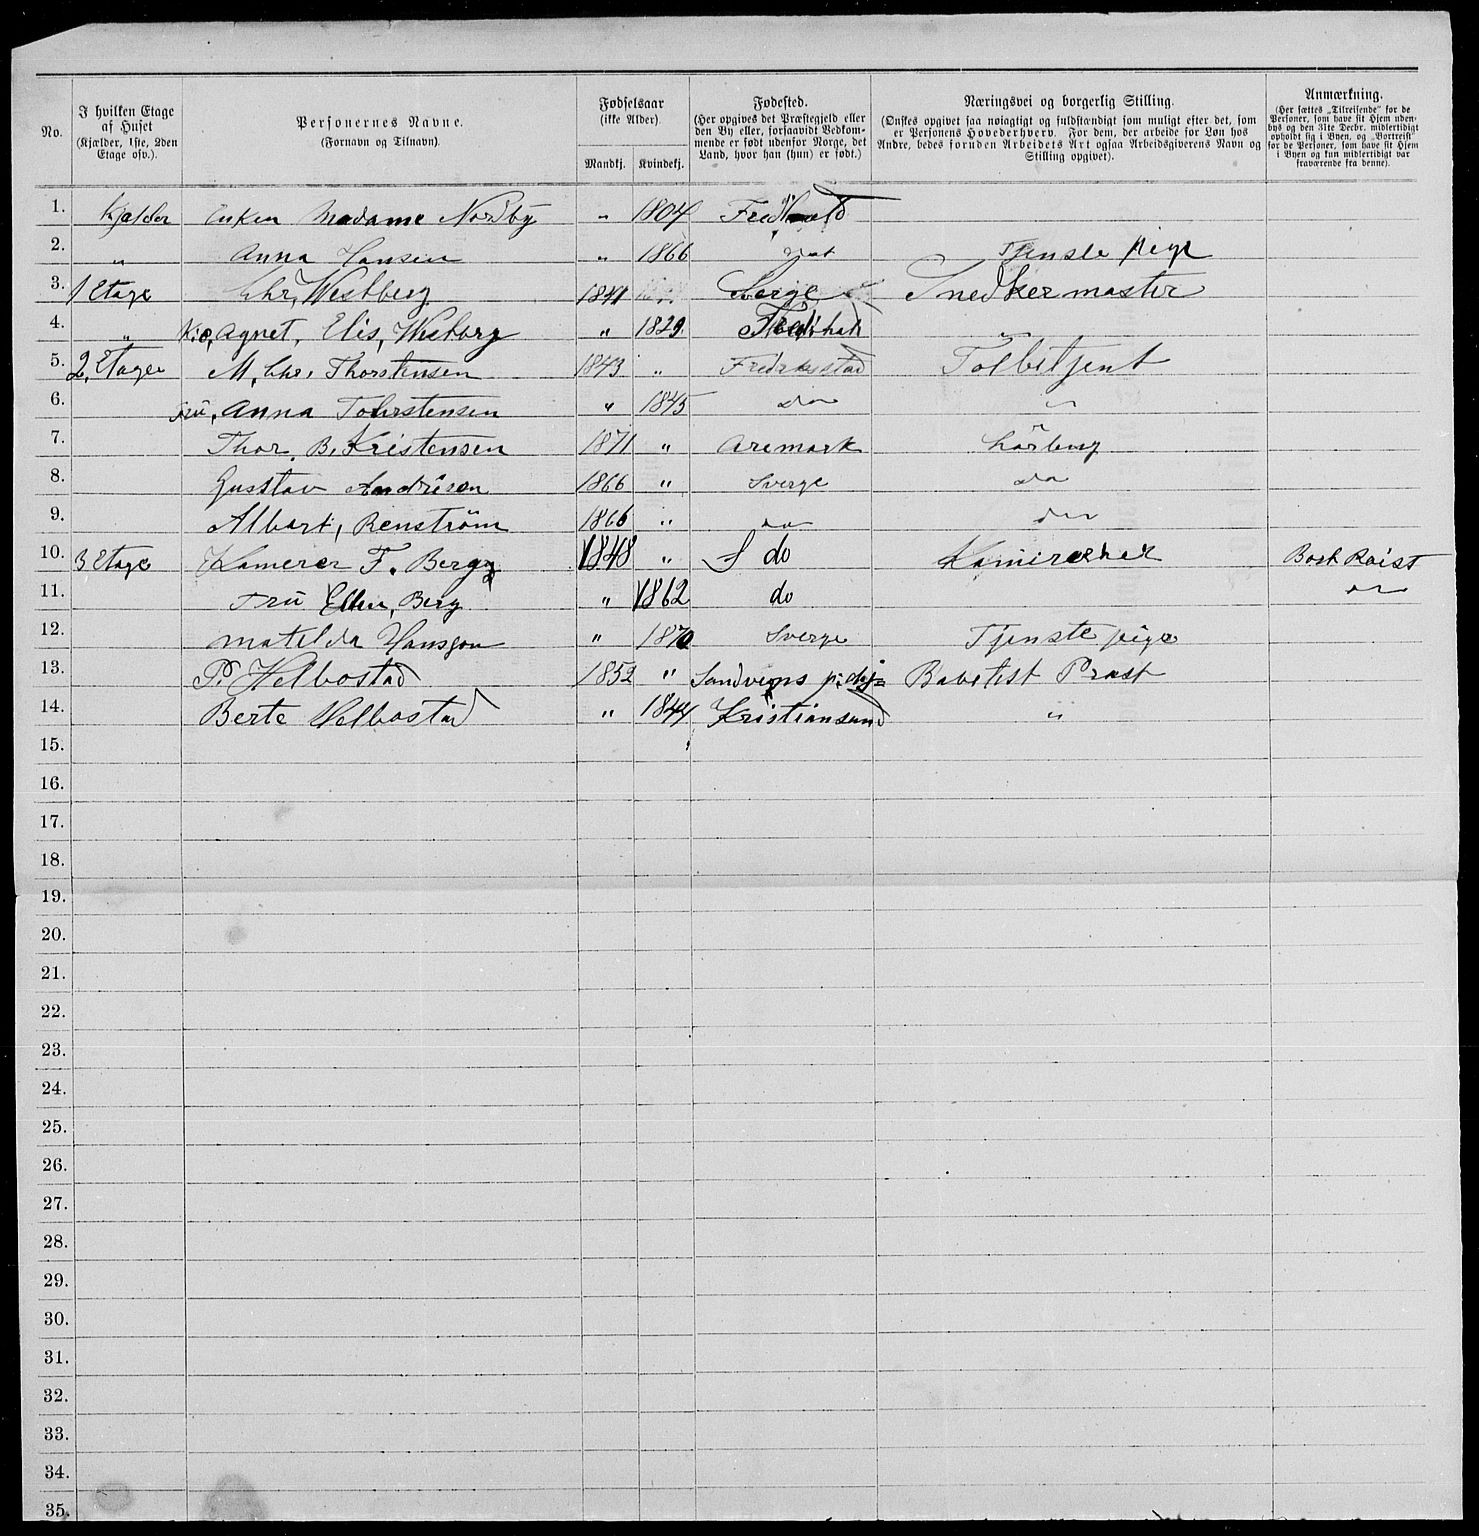 No.
I hvilken Etage af Huset (Kjælder, 1ste, 2den Etage osv.).
Personernes Navne. (Fornavn og Tilnavn).
Fødselsaar (ikke Alder).
Mandkj. Kvindekj.
Fødested. (Her opgives det Præstegjeld eller den By eller, forsaavidt Vedkommende er født udenfor Norge, det Land, hvor han (hun) er født.)
Næringsvei og borgerlig Stilling. (Ønskes opgivet saa nøiagtigt og fuldstændigt som muligt efter det, som er Personens Hovederhverv. For dem, der arbeide for Løn hos Andre, bedes foruden Arbeidets Art ogsaa Arbeidsgiverens Navn og Stilling opgivet).
Anmærkning. (Her sættes „Tilreisende" for de Personer, som have sit Hjem udenbys og den 31te Decbr. midlertidigt opholdt sig i Byen, og „Bortreist" for de Personer, som have sit Hjem i Byen og kun midlertidigt var fraværende fra denne).
1. Kjælder Enken Madame Nordby " 1804
2. " Anna Hansen " 1866 Tjenste pige
3. 1 Etage Chr, Westberg 1841 Sverge Snedkermaster
4. " Agnet, Elis, Westberg " 1829 "
5. 2, Etage M, Chr, Thorstensen 1843 " Fredrkstad Tolbetjent
6. Fru, Anna Tohrstensen " 1845 do "
7. Thor, B, Kristensen 1871 " Aremark
8. Gusstav Andrison 1866 " Sverge do
9. Albert, Renström 1866 " do do
10. 3 Etage Kamerer F. Berg 1848 " do
11. Fru Ellen, Berg " 1862 do do
12. Matilda Hansson " 1870 Sverge Tjenste pige
13. P. Helbostad 1852 " Babtist Præst
14. Berte Helbostad " 1844 Kristiansund "
15.
16.
17.
18.
19.
20.
21.
22.
23.
24.
25.
26.
27.
28.
29.
30.
31.
32.
33.
34.
35.